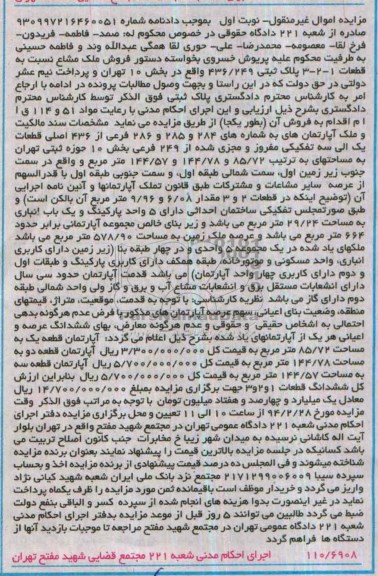 مزایده اموال غیرمنقول- نوبت اول   بموجب دادنامه شماره ۹۳۰۹۹۷۲۱۶۴۶۰۰۵۱
صادره از شعبه ۲۲۱ دادگاه حقوقی در خصوص محکوم له: صمد- فاطمه- فریدون-
فرخ لقا- معصومه- محمدرضا- علی- حوری لقا همگی عبدالله وند و فاطمه حسینی
به طرفیت محکوم علیه پریوش خسروی بخواسته دستور فروش ملک مشاع نسبت به
قطعات ۱-۲-۳ پلاک ثبتی ۴۳۶/۲۴۹ واقع در بخش ۱۰ تهران و پرداخت نیم عشر
دولتی در حق دولت که در این راستا و بجهت وصول مطالبات پرونده در ادامه با ارجاع
امر به کارشناس محترم دادگستری پلاک ثبتی فوق الذکر توسط کارشناس محترم
دادگستری بشرح ذیل ارزیابی و این اجرای احکام مدنی با رعایت مواد ۵۱ و ۱۱۴ ق ا
ا م اقدام به فروش آن (بطور یکجا) از طریق مزایده می نماید  مشخصات سند مالکیت
و ملک آپارتمان های به شماره های ۲۸۴ و ۲۸۵ و ۲۸۶ فرعی از ۴۳۶ اصلی قطعات
یک الی سه تفکیکی مفروز و مجزی شده از ۲۴۹ فرعی بخش ۱۰ حوزه ثبتی تهران
به مساحتهای به ترتیب ۸۵/۷۲ و ۱۴۴/۷۸ و ۱۴۴/۵۷ متر مربع و واقع در سمت
جنوب زیر زمین اول، سمت شمالی طبقه اول، و سمت جنوبی طبقه اول با قدرالسهم
از عرصه  سایر مشاعات و مشترکات طبق قانون تملک آپارتمانها و آئین نامه اجرایی
آن (توضیح اینکه در قطعات ۲ و ۳ مقدار ۶/۰۸ و ۹/۹۶ متر مربع آن بالکن است) و
طبق صورتمجلس تفکیکی ساختمان احداثی دارای ۵ واحد پارکینگ و یک باب انباری
به مساحت ۲۹/۲۴ متر مربع می باشد و زیر بنای خالص مجموعه آپارتمانی برابر حدود
۶۶۴ متر مربع می باشد و عرصه ملک زمین به مساحت ۵۷۸/۹۰ متر مربع می باشد
ملکهای یاد شده در یک مجموعه ۵ واحدی و در چهار طبقه بنا (زیر زمین دارای کاربری
انباری، واحد مسکونی و موتورخانه، طبقه همکف دارای کاربری پارکینگ و طبقات اول
و دوم دارای کاربری چهار واحد آپارتمان) می باشد قدمت آپارتمان حدود سی سال
دارای انشعابات مستقل برق و انشعابات مشاع آب و برق و گاز ولی واحد شمالی طبقه
دوم دارای گاز می باشد  نظریه کارشناسی: با توجه به قدمت، موقعیت، متراژ، قیمتهای
منطقه، وضعیت بنای اعیانی، سهم عرصه آپارتمان های مذکور با فرض عدم هرگونه بدهی
احتمالی به اشخاص حقیقی  و حقوقی و عدم هرگونه معارض، بهای ششدانگ عرصه و
اعیانی هر یک از آپارتمانهای یاد شده بشرح ذیل اعلام می گردد: آپارتمان قطعه یک به
مساحت ۸۵/۷۲ متر مربع به قیمت کل ۳/۳۰۰/۰۰۰/۰۰۰ ریال آپارتمان قطعه دو به
مساحت ۱۴۴/۷۸ متر مربع به قیمت کل ۵/۷۰۰/۰۰۰/۰۰۰ ریال آپارتمان قطعه سه
به مساحت ۱۴۴/۵۷ متر مربع به قیمت کل ۵/۷۰۰/۰۰۰/۰۰۰ ریال  بنابراین ارزش
کل ششدانگ قطعات ۱و۲و۳ جهت برگزاری مزایده بمبلغ ۱۴/۷۰۰/۰۰۰/۰۰۰ ریال
معادل یک میلیارد و چهارصد و هفتاد میلیون تومان  با توجه به مراتب فوق الذکر  وقت
مزایده مورخ ۹۴/۲/۲۸ از ساعت ۱۰ الی ۱۱ تعیین و محل برگزاری مزایده دفتر اجرای
احکام مدنی شعبه ۲۲۱ دادگاه عمومی تهران در مجتمع شهید مفتح واقع در تهران بلوار
آیت اله کاشانی نرسیده به میدان شهر زیبا خ مخابرات  جنب کانون اصلاح تربیت می
باشد کسانیکه در جلسه مزایده بالاترین قیمت را پیشنهاد نمایند بعنوان برنده مزایده
شناخته میشوند و فی المجلس ده درصد قیمت پیشنهادی از برنده مزایده اخذ و بحساب
سپرده سیبا ۲۱۷۱۲۹۹۰۰۶۰۰۹ مجتمع نزد بانک ملی ایران شعبه شهید کیانی نژاد
واریز می گردد و خریدار موظف است باقیمانده ثمن مورد مزایده را ظرف یکماه پرداخت
نماید در غیر اینصورت بدوا هزینه های انجام شده از سپرده  کسر و الباقی بنفع دولت
ضبط می گردد طالبین می توانند ۵ روز قبل از موعد مزایده بدفتر اجرای احکام مدنی
شعبه ۲۲۱ دادگاه عمومی تهران در مجتمع شهید مفتح مراجعه تا موجبات بازدید آنها از
دستگاه ها  فراهم گردد
۱۱۰/۶۹۰۸   اجرای احکام مدنی شعبه ۲۲۱ مجتمع قضایی شهید مفتح تهران